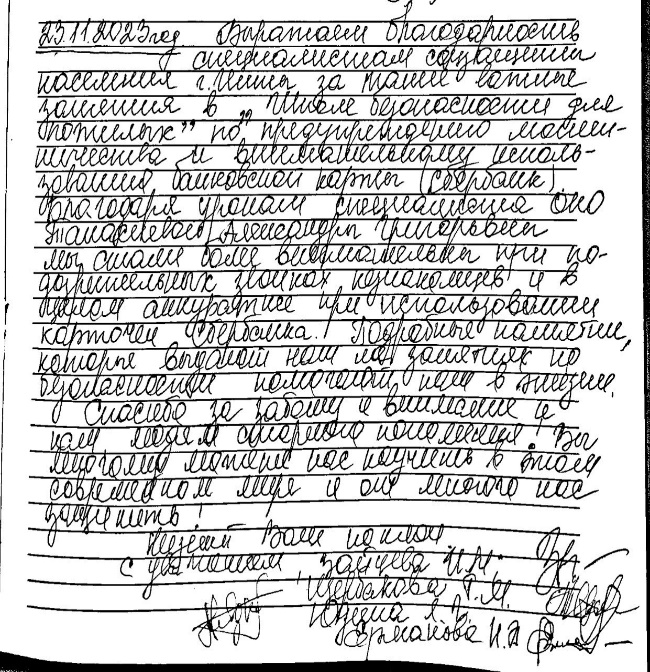 23.11.2023год Выражаем благодарность
специалистам соцзащиты
населения г. Читы за такие важные
занятия в "Школе безопасности для
пожилых" по "предупреждению мошен-
ничества и внимательному исполь-
зованию банковской карты (Сбербанк).
Благодаря урокам специалиста ОАО
Александры Григорьевны
мы стали более внимательны при по-
дозрительных звонках незнакомцев и в
целом аккуратнее при использовании
карточки Сбербанка. Подробные памятки,
которые выдают нам на занятиях по
безопасности помогают нам в жизни.
Спасибо за заботу и внимание к
нам людям старшего поколения! Вы
многому можете нас научить в этом
современном мире и от многого нас
защитить!
Низкий Вам поклон
с уважением Зайцева Н.М.
Щербакова Г.М.
Юдина Л.В.
Ермакова Н.А